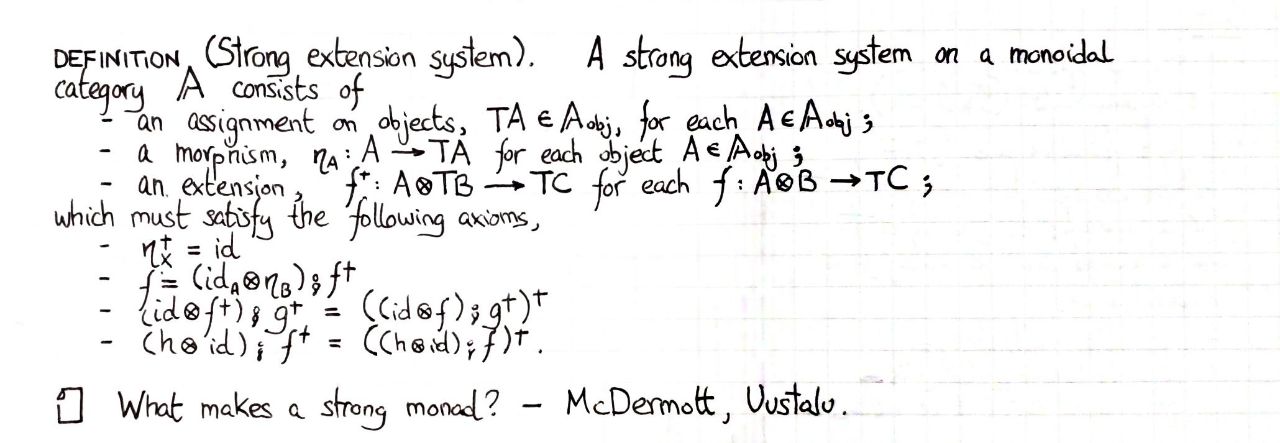 DEFINITION (Strong extension system). A strong extension system on a monoidal
category 𝔸 consists of
- an assignment on objects, TA ∈ 𝔸obj, for each A ∈ 𝔸obj ;
- a morphism, ηA : A → TA for each object A ∈ 𝔸obj ;
- an extension, f⁺ : A⊗TB → TC for each f : A⊗B → TC ;
which must satisfy the following axioms,
- ηx⁺ = id
- f = (idA⊗ηB) ⨾ f⁺
- (id⊗f⁺) ⨾ g⁺ = ((id⊗f) ⨾ g⁺)⁺
- (h⊗id) ⨾ f⁺ = ((h⊗id) ⨾ f)⁺.
What makes a strong monad? – McDermott, Uustalu.